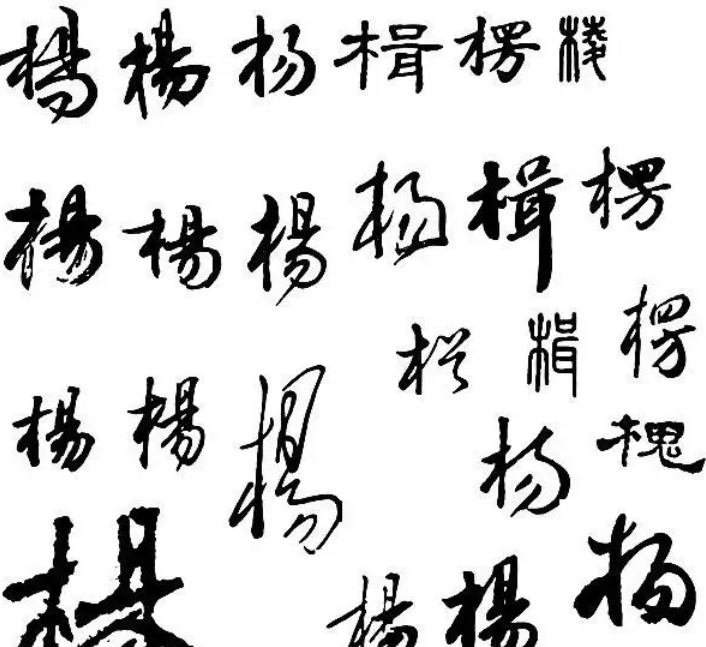 楊楊杨楫楞棱
楊楊楊杨楫楞
楫楞
楊楊楊杨槐
楊楊楊杨